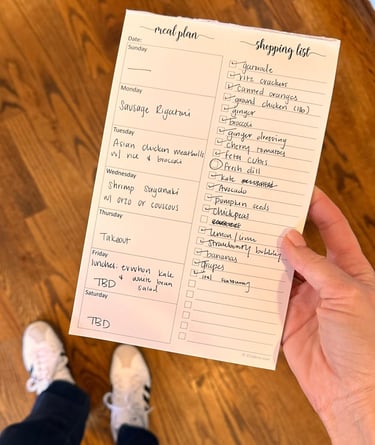 meal plan
Date:
Sunday
Monday
Sausage Rigatoni
Tuesday
Asian chicken meatballs
w/ rice & broccoli
Wednesday
Shrimp Saganaki
w/ orzo or couscous
Thursday
Takeout
Friday
lunch: erewhon kale
& white bean
salad
TBD
Saturday
TBD
shopping list
ritz crackers
canned oranges
ground chicken (1lb)
ginger
broccoli
ginger dressing
cherry tomatoes
feta cubes
fresh dill
kale
Avocado
pumpkin seeds
chickpeas
lemon/lime
strawberry bubbly
bananas
grapes